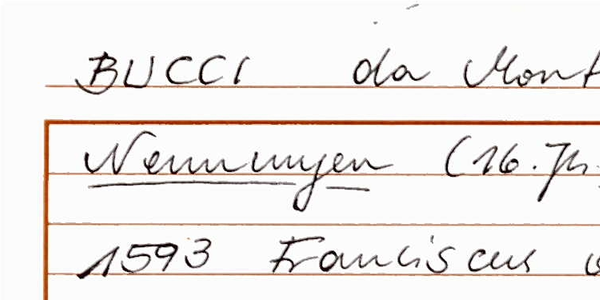 BUCCI da Mont
Nennungen (16. Jh.
1593 Franciscus